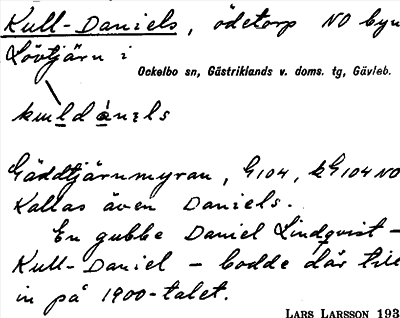 Kull-Daniels, ödetorp NO byn
Lövtjärn i
Ockelbo sn, Gästriklands v. doms. tg, Gävleb.
Gäddtjärnmyran, G104, kG104 NO
Kallas även Daniels.
En gubbe Daniel Lindqvist -
Kull-Daniel - bodde där till
in på 1900-talet.
LARS LARSSON 193